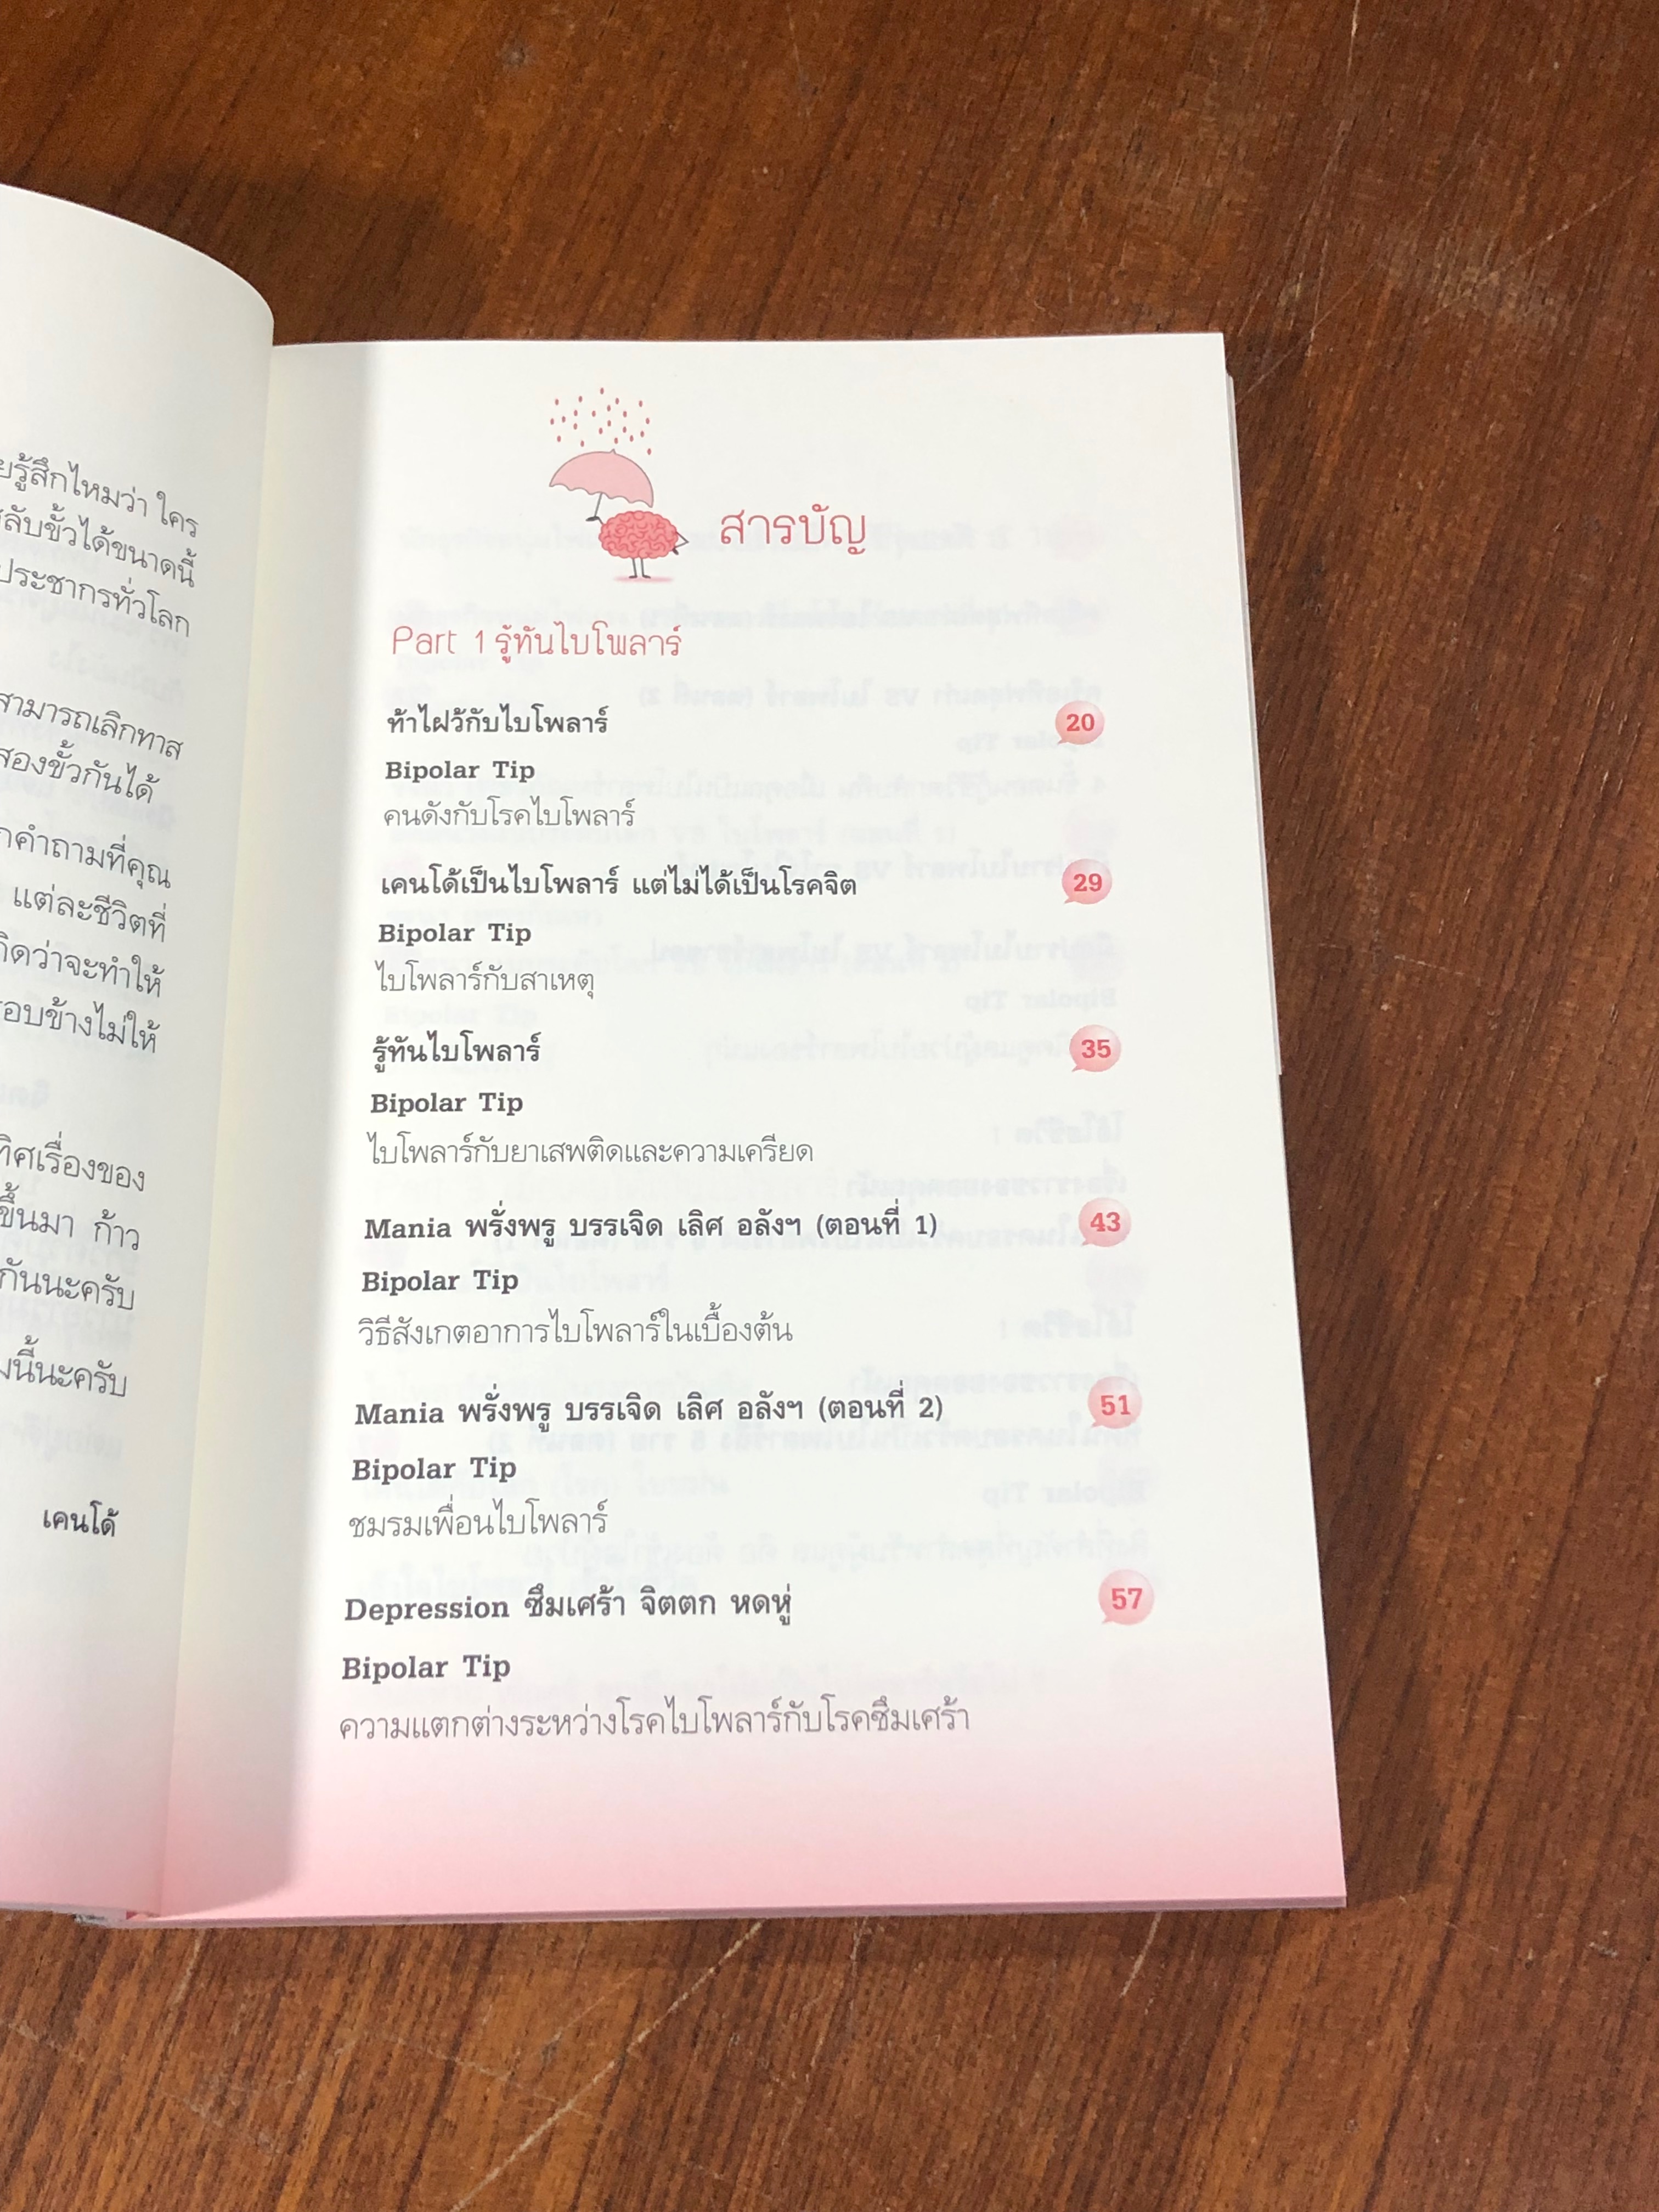 ยรู้สึกไหมว่า ใคร
ลับขั้วได้ขนาดนี้
ประชากรทั่วโลก
สามารถเลิกทาส
สองขั้วกันได้
กคำถามที่คุณ
แต่ละชีวิตที่
คิดว่าจะทำให้
รอบข้างไม่ให้
ทิศเรื่องของ
ขึ้นมา ก้าว
กันนะครับ
มนี้นะครับ
เคนโด้
สารบัญ
Part 1 รู้ทันไบโพลาร์
ท้าไฝว้กับไบโพลาร์ 20
Bipolar Tip
คนดังกับโรคไบโพลาร์
เคนโด้เป็นไบโพลาร์ แต่ไม่ได้เป็นโรคจิต 29
Bipolar Tip
ไบโพลาร์กับสาเหตุ
รู้ทันไบโพลาร์ 35
Bipolar Tip
ไบโพลาร์กับยาเสพติดและความเครียด
Mania พรั่งพรู บรรเจิด เลิศ อลังฯ (ตอนที่ 1) 43
Bipolar Tip
วิธีสังเกตอาการไบโพลาร์ในเบื้องต้น
Mania พรั่งพรู บรรเจิด เลิศ อลังฯ (ตอนที่ 2) 51
Bipolar Tip
ชมรมเพื่อนไบโพลาร์
Depression ซึมเศร้า จิตตก หดหู่ 57
Bipolar Tip
ความแตกต่างระหว่างโรคไบโพลาร์กับโรคซึมเศร้า